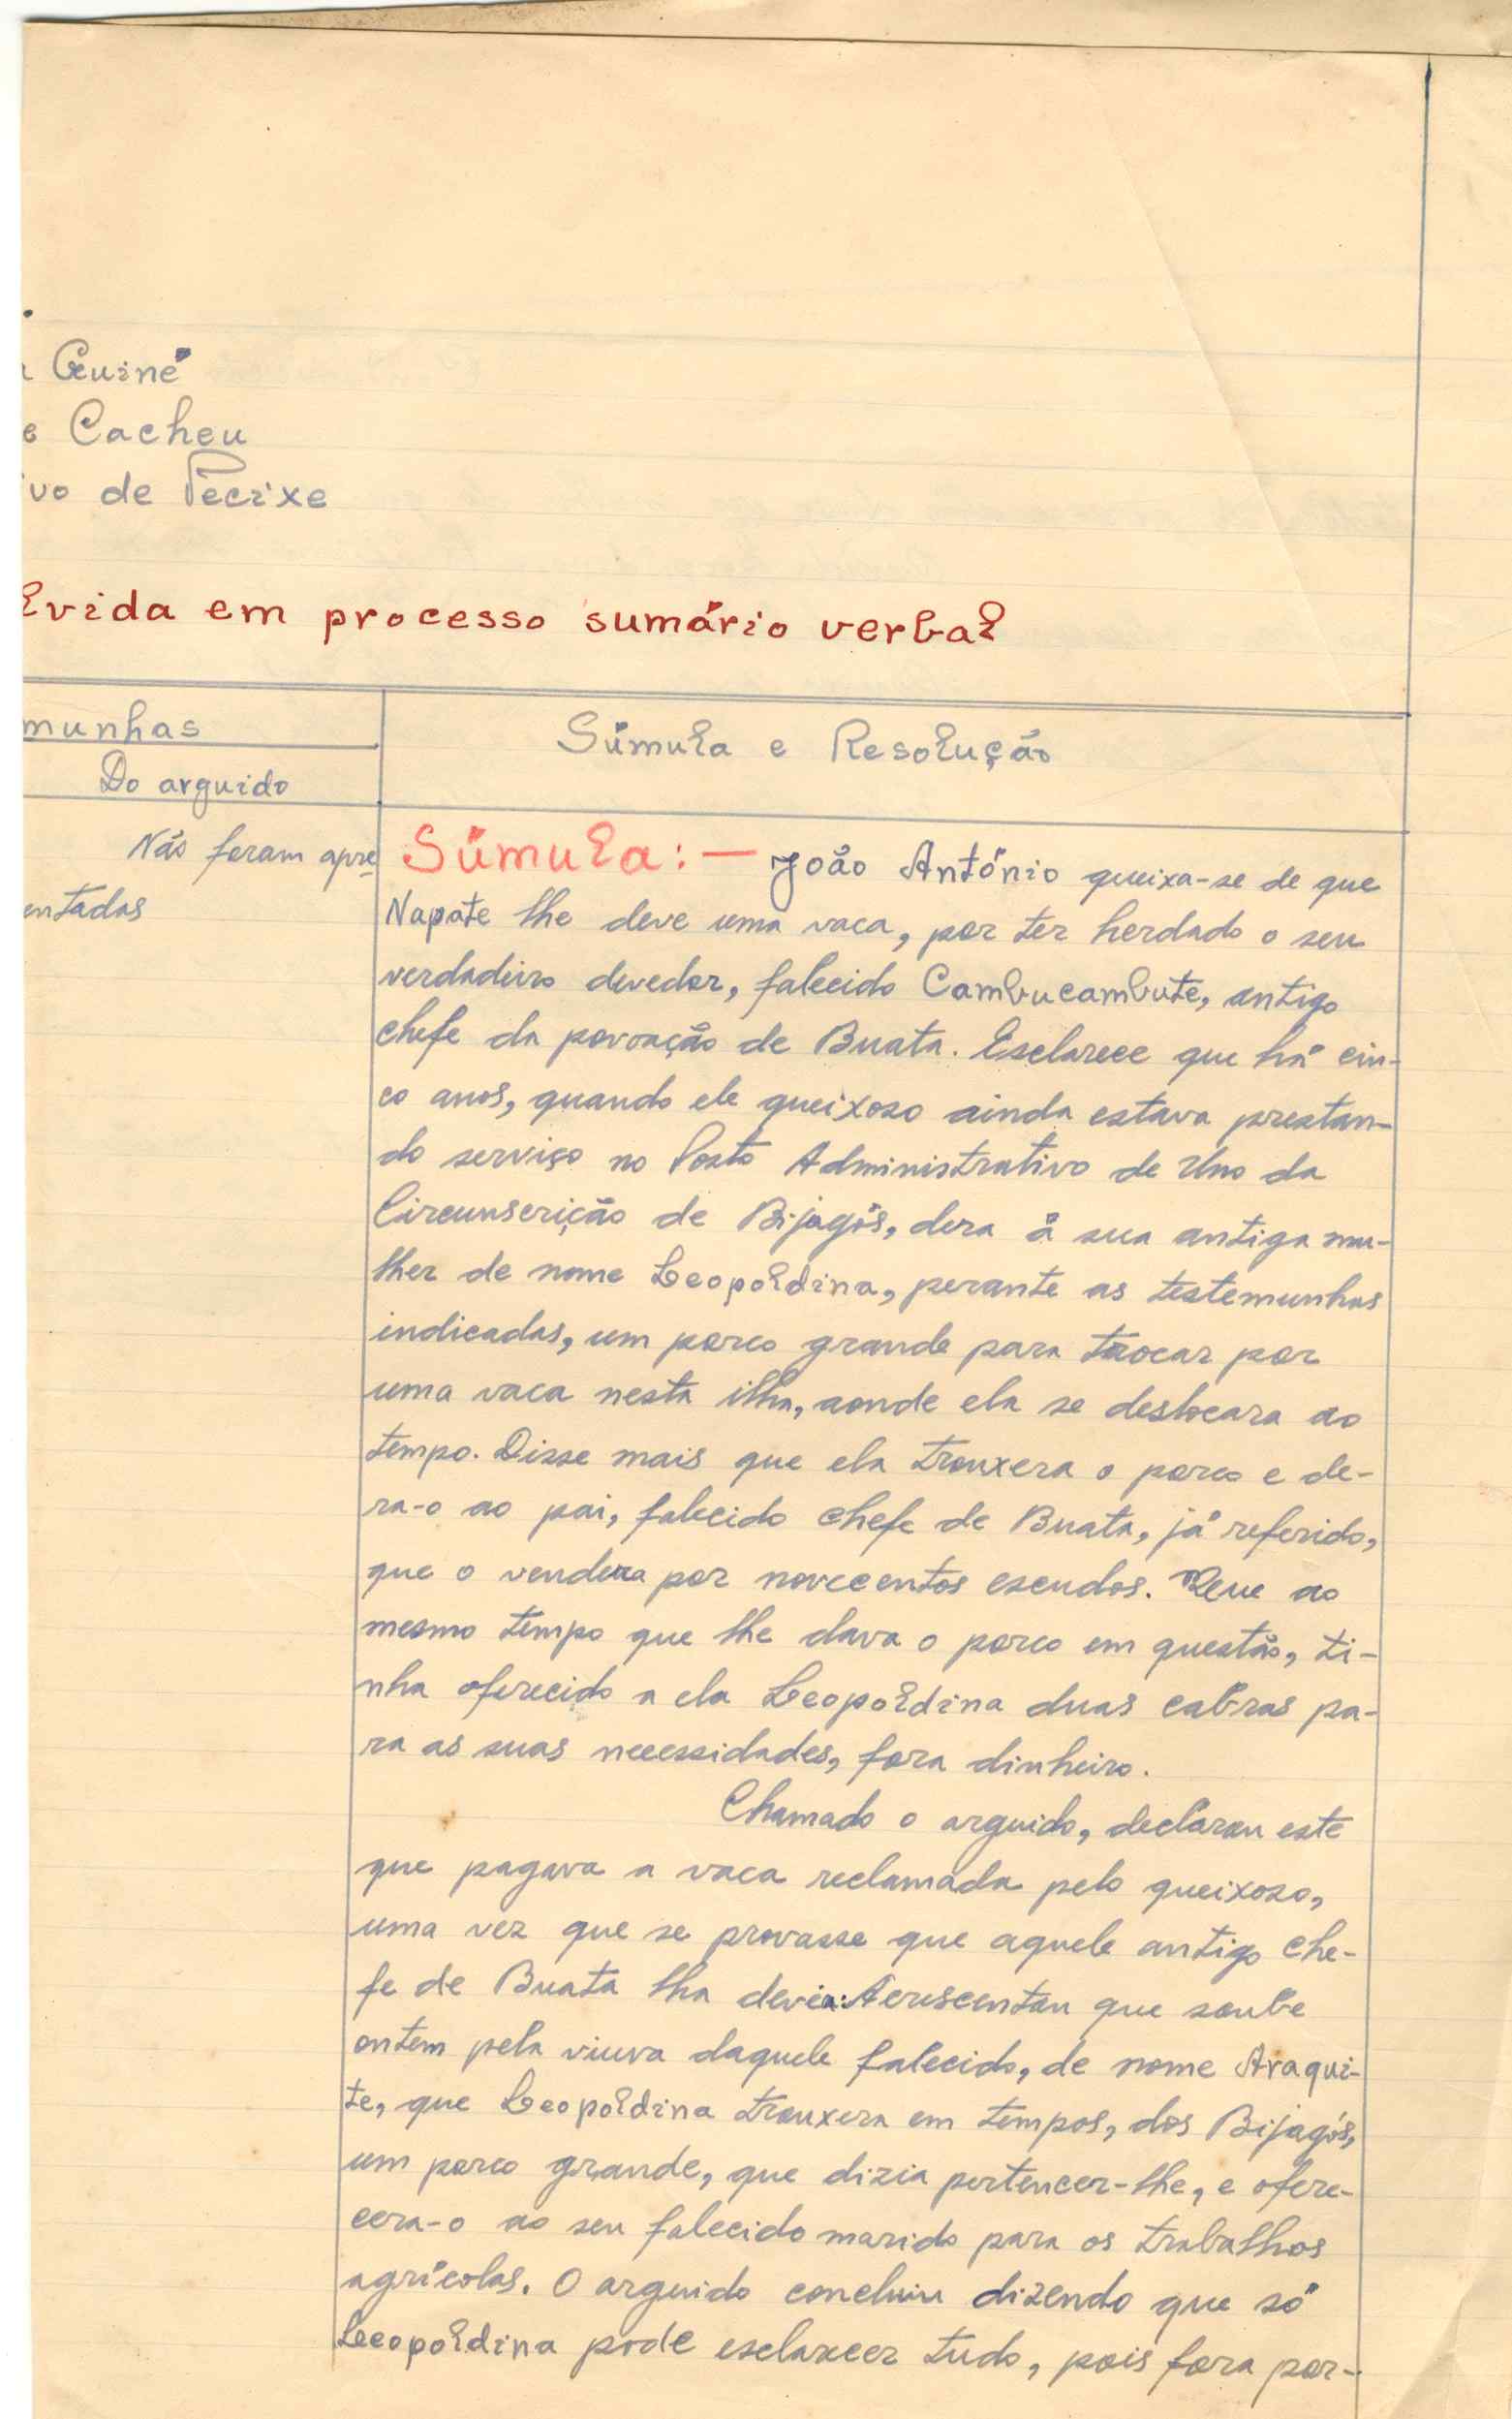 Guiné
e Cacheu
ivo de Pecixe
lvida em processo sumário verbal
munhas
Do arguido
Súmula e Resolução
Não foram apre
entadas
Súmula: — João António queixa-se de que
Napate lhe deve uma vaca, por ter herdado o seu
verdadeiro devedor, falecido Cambucambute, antigo
chefe da povoação de Buata. Esclarece que há cin-
co anos, quando ele queixoso ainda estava prestan-
do serviço no Posto Administrativo de Uno da
Circunscrição de Bijagós, dera à sua antiga mu-
lher de nome Leopoldina, perante as testemunhas
indicadas, um porco grande para trocar por
uma vaca nesta ilha, aonde ela se deslocara ao
tempo. Disse mais que ela trouxera o porco e de-
ra-o ao pai, falecido chefe de Buata, já referido,
que o vendera por novecentos escudos. Que ao
mesmo tempo que lhe dava o porco em questão, ti-
nha oferecido a ela Leopoldina duas cabras pa-
ra as suas necessidades, fora dinheiro.
Chamado o arguido, declarou este
que pagava a vaca reclamada pelo queixoso,
uma vez que se provasse que aquele antigo che-
fe de Buata lha devia. Acrescentou que soube
ontem pela viuva daquele falecido, de nome Araqui-
te, que Leopoldina trouxera em tempos, dos Bijagós,
um porco grande, que dizia pertencer-lhe, e ofere-
cera-o ao seu falecido marido para os trabalhos
agrícolas. O arguido concluiu dizendo que só
Leopoldina pode esclarecer tudo, pois fora por-